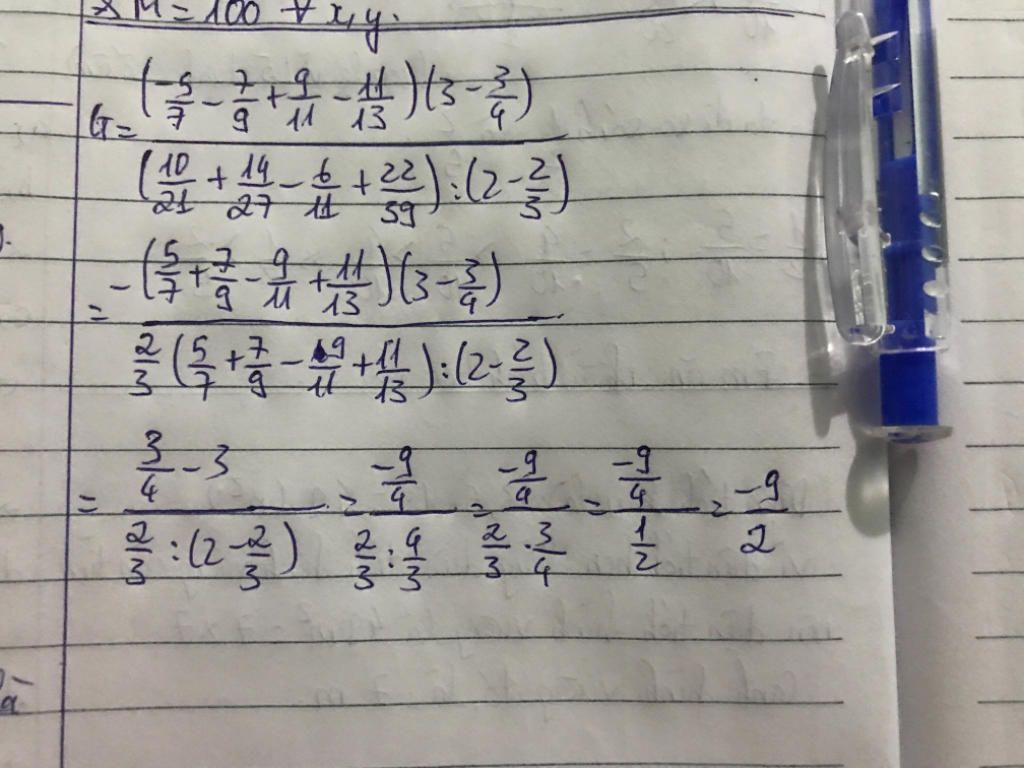 * M = 100 ∀ x, y.
G = (-5/7 - 7/9 + 9/11 - 11/13)(3 - 3/4) / (10/21 + 14/27 - 6/11 + 22/59) : (2 - 2/3)
= -(5/7 + 7/9 - 9/11 + 11/13)(3 - 3/4) / 2/3 (5/7 + 7/9 - 9/11 + 11/13) : (2 - 2/3)
= (3/4 - 3) / (2/3 : (2 - 2/3)) = (-9/4) / (2/3 : 4/3) = (-9/4) / (2/3 . 3/4) = (-9/4) / (1/2) = -9/2